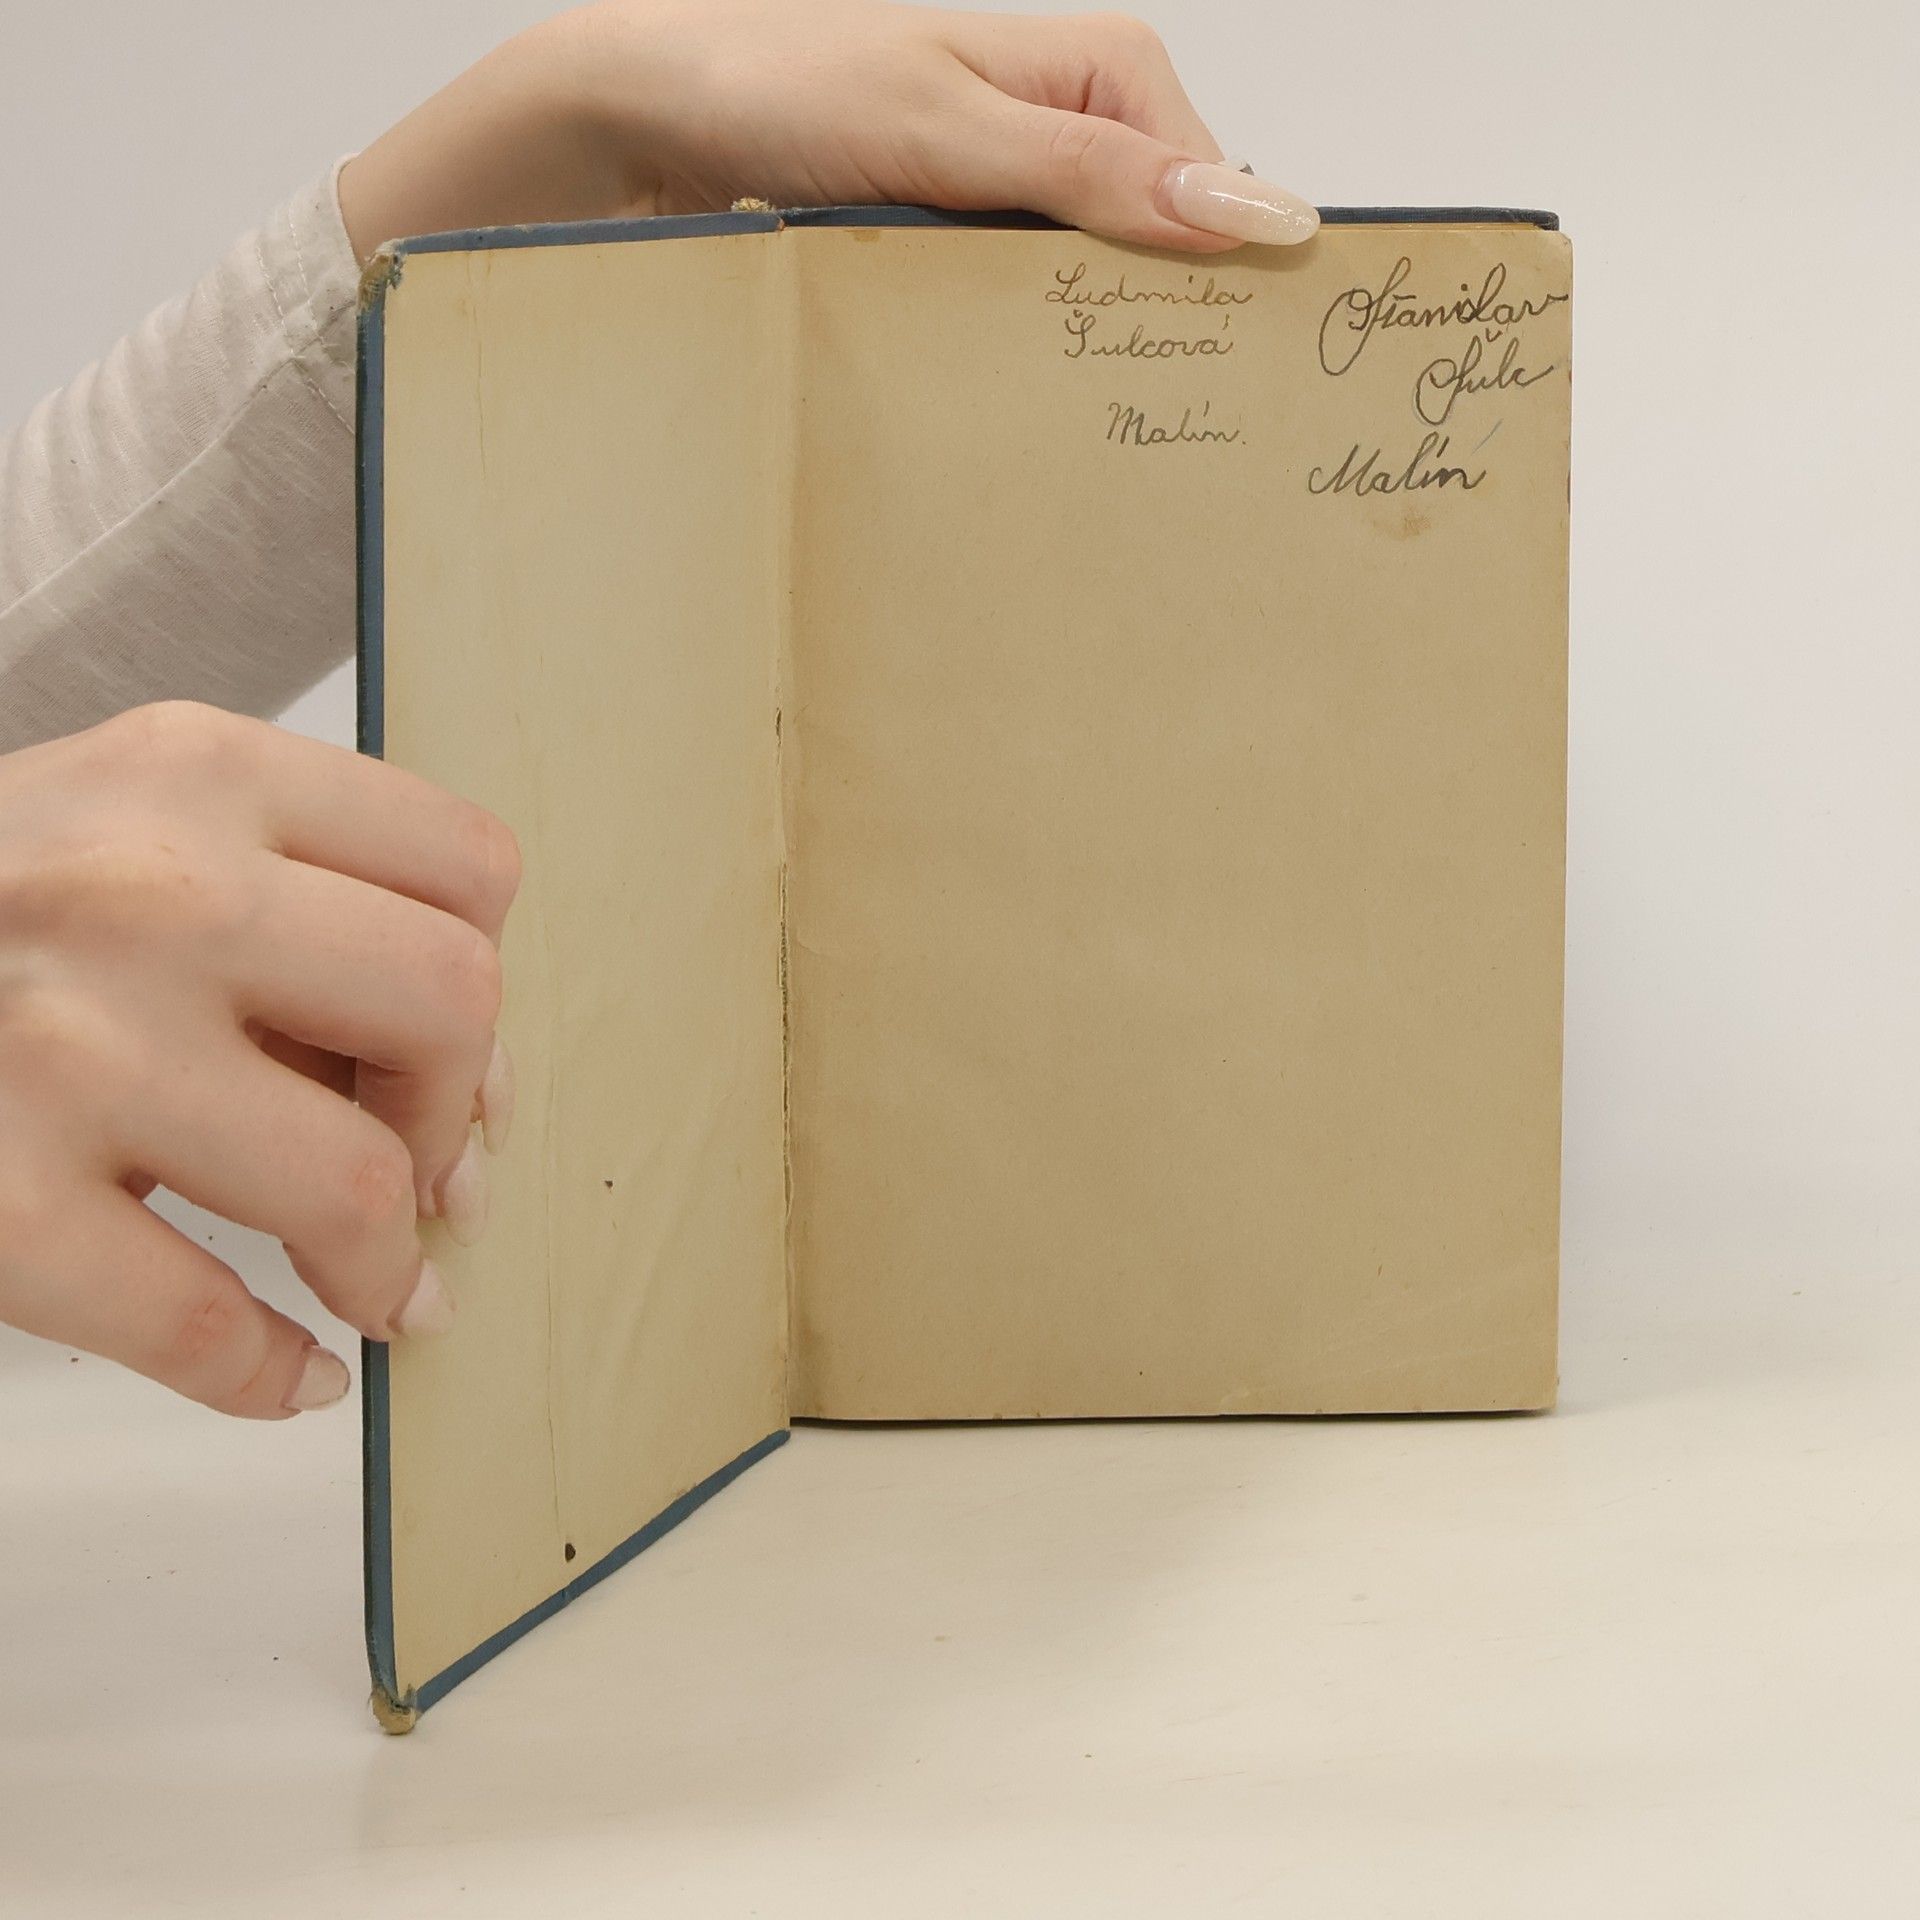 Ludmila
Šulcová
Malín.
Stanislav
Šulc
Malín